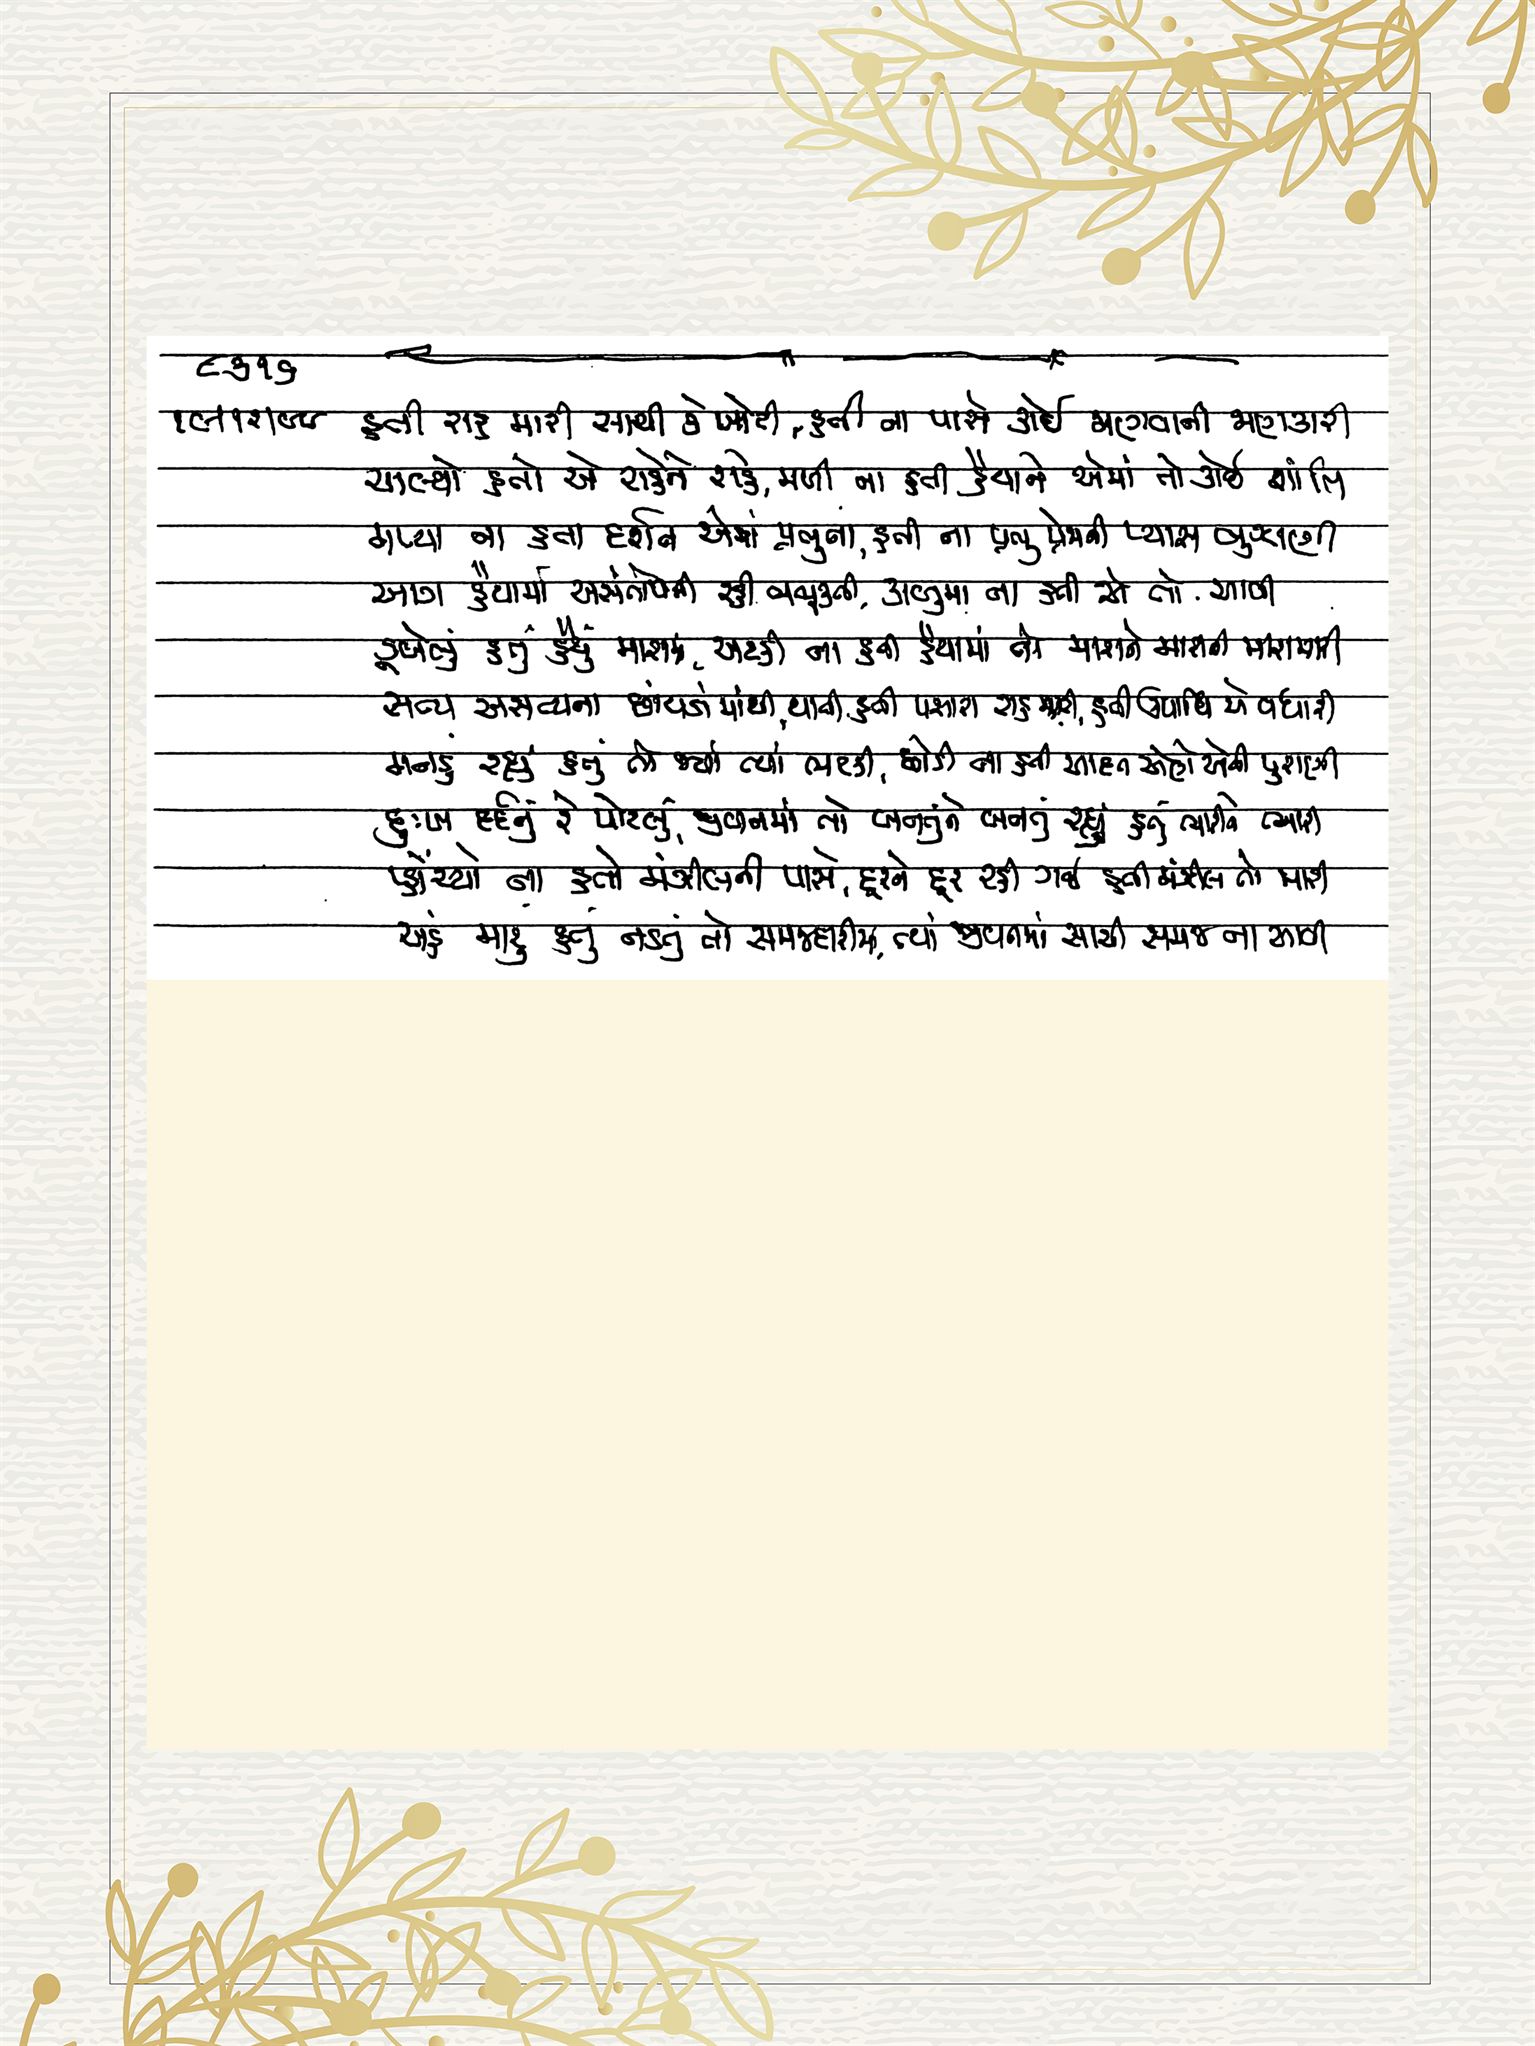 ૮૭૧૬
હતી રાહ મારી સાચી કે ખોટી, હતી ના પાસે કોઈ જાણવાની જાણકારી
ચાલ્યો હતો એ રાહેને રાહે, મળી ના હતી હૈયાને એમાં તો કોઈ શાંતિ
મળ્યા ના હતા દર્શન એમાં પ્રભુના, હતી ના પ્રભુ પ્રેમની પ્યાસ બુઝાણી
આગ હૈયામાં અસંતોષની રહી ભભૂકતી, કાબૂમાં ના હતી એ તો આવી
ડૂબેલું હતું હૈયું મારામાં, અટકી ના હતી હૈયામાં તો મારાને મારાની મારામારી
સત્ય અસત્યના છાંયડામાંથી, થાતી હતી પસાર રાહ મારી, હતી ઉપાધિ એ વધારી
મનડું રહ્યું હતું તો જ્યાં ત્યાં ભટકી, છોડી ના હતી આદત એણે એની પુરાણી
દુઃખ દર્દનું રે પોટલું, જીવનમાં તો બનતુંને બનતું રહ્યું હતું ભારીને ભારી
પ્હોંચ્યો ના હતો મંઝીલની પાસે, દૂરને દૂર રહી ગઈ હતી મંઝીલ તો મારી
અહં મારું હતું નડતું તો સમજદારીમાં, ત્યાં જીવનમાં સાચી સમજ ના આવી